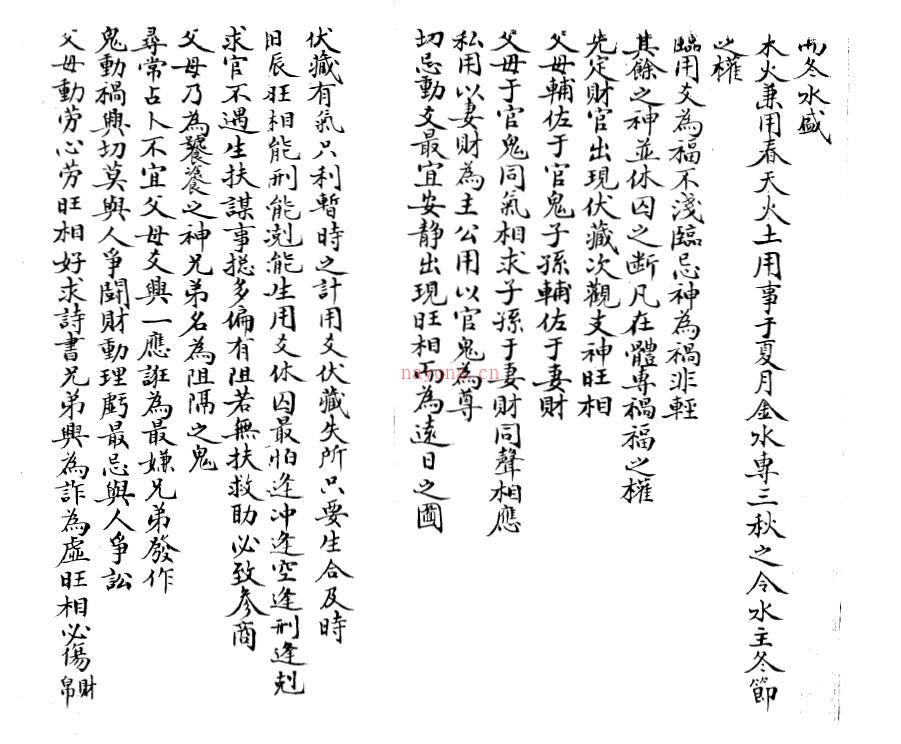 而冬水盛
木火兼用春天火土用事于夏月金水專三秋之令水主冬節
之權
臨用爻為福不淺臨忌神為禍非輕
其餘之神並休囚之断凡在體專禍福之權
先定財官出現伏藏次觀支神旺相
父母輔佐于官鬼子孫輔佐于妻財
父母于官鬼同氣相求子孫于妻財同聲相應
私用以妻財為主公用以官鬼為尊
切忌動爻最宜安静出現旺相可為遠日之啚
伏藏有氣只利暫時之計用爻伏藏失所只要生合及時
日辰旺相能刑能剋能生用爻休囚最怕逢冲逢空逢刑逢剋
求官不遇生扶謀事捴多偏有阻若無扶救助必致參商
父母乃為饕餮之神兄弟名為阻隔之鬼
尋常占卜不宜父母爻興一應誑為最嫌兄弟發作
鬼動禍興切莫與人爭鬪財動理虧最忌與人爭訟
父母動劳心劳旺相好求詩書兄弟興為詐為虛旺相必傷財帛
nayona.cn